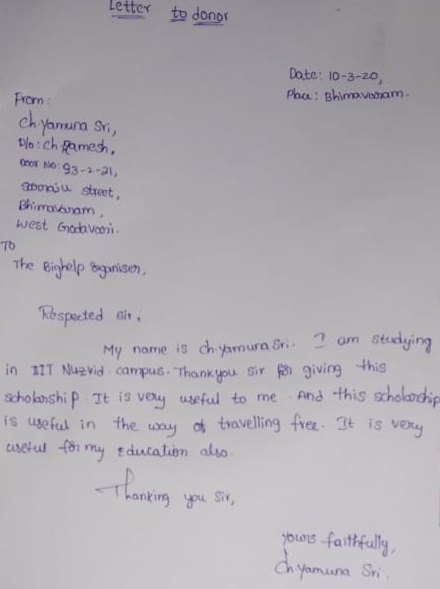 Letter to donor
Date: 10-3-20,
Place: Bhimavaram.
From:
Ch.Yamuna Sri,
D/o: Ch Ramesh,
Door No: 93-2-21,
street,
Bhimavaram,
West Godavari.
To
The Bighelp organiser,
Respected sir,
My name is ch.yamuna Sri. I am studying
in IIIT Nuzvid campus. Thankyou sir for giving this
scholarship. It is very useful to me. And this scholarship
is useful in the way of travelling free. It is very
useful for my education also.
Thanking you Sir,
yours faithfully,
Ch.yamuna Sri.